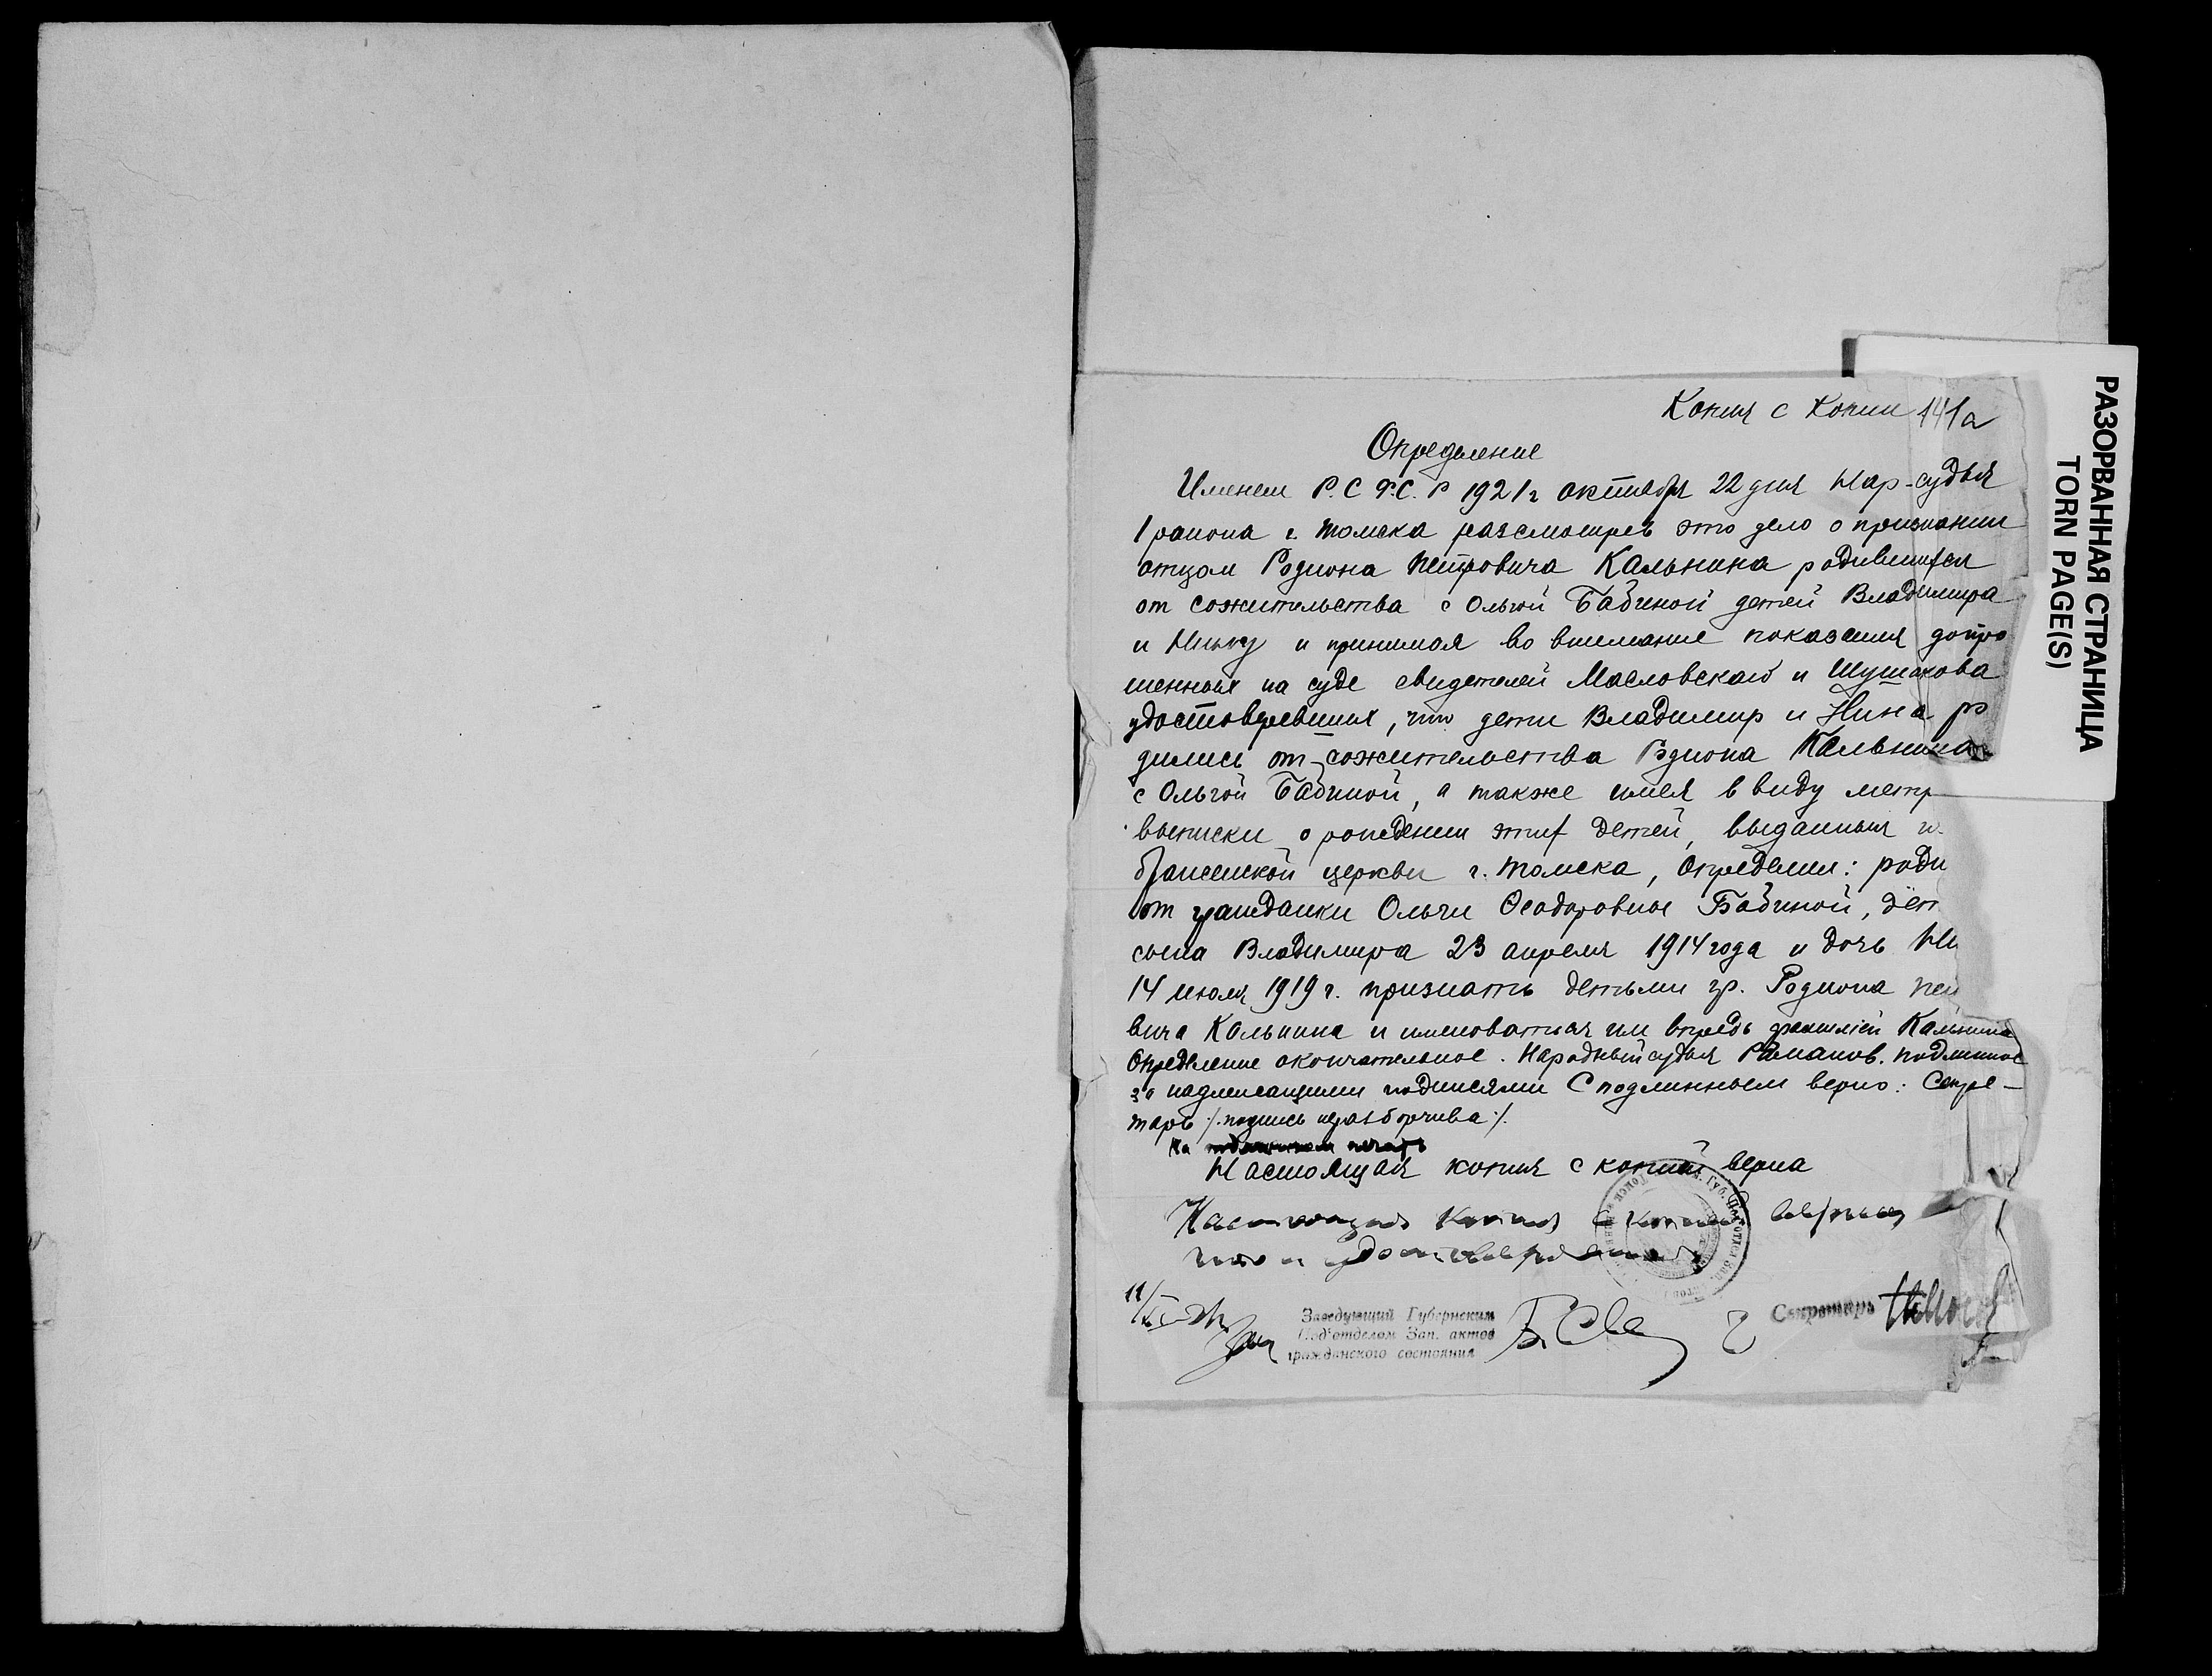 Копия с копии 141а
Определение
Именем Р.С.Ф.С.Р 1921 г октября 22 дня Нар-судья
1 раиона г. Томска разсмотрев это дело о признании
отцом Родиона Петровича Кальнина родившихся
от сожительства с Ольгой Бабиной детей Владимира
и Нину и принимая во внимание показания допро
шенных на суде свидетелей Масловскаго и Шушакова
удостоверевших, что дети Владимир и Нина ро
дились от сожительства Родиона Кальнина
с Ольгой Бабиной, а также имея в виду метр
выписки о рождении этих детей, выданныя
церкви г. Томска, Определил: роди
от гражданки Ольги Феодоровны Бабиной, дет
сына Владимира 23 апреля 1914 года и дочь Ни
14 июля 1919 г. признать детьми гр. Родиона Пет
вича Кальнина и именоваться им впредь фамилией Кальнина
Определение окончательное. Народный судья Романов. Подлинное
за надлежащими подписями С подлинным верно: Секре-
тарь /.подпись неразборчива/.
На подлинном печать
Настоящая копия с копией верна
Настоящая копия с копией верна
что и удостоверяется
11/
Зав Заведующий Губернским
Под'отделом Зап. актов
гражданского состояния
Секретарь
РАЗОРВАННАЯ СТРАНИЦА
TORN PAGE(S)